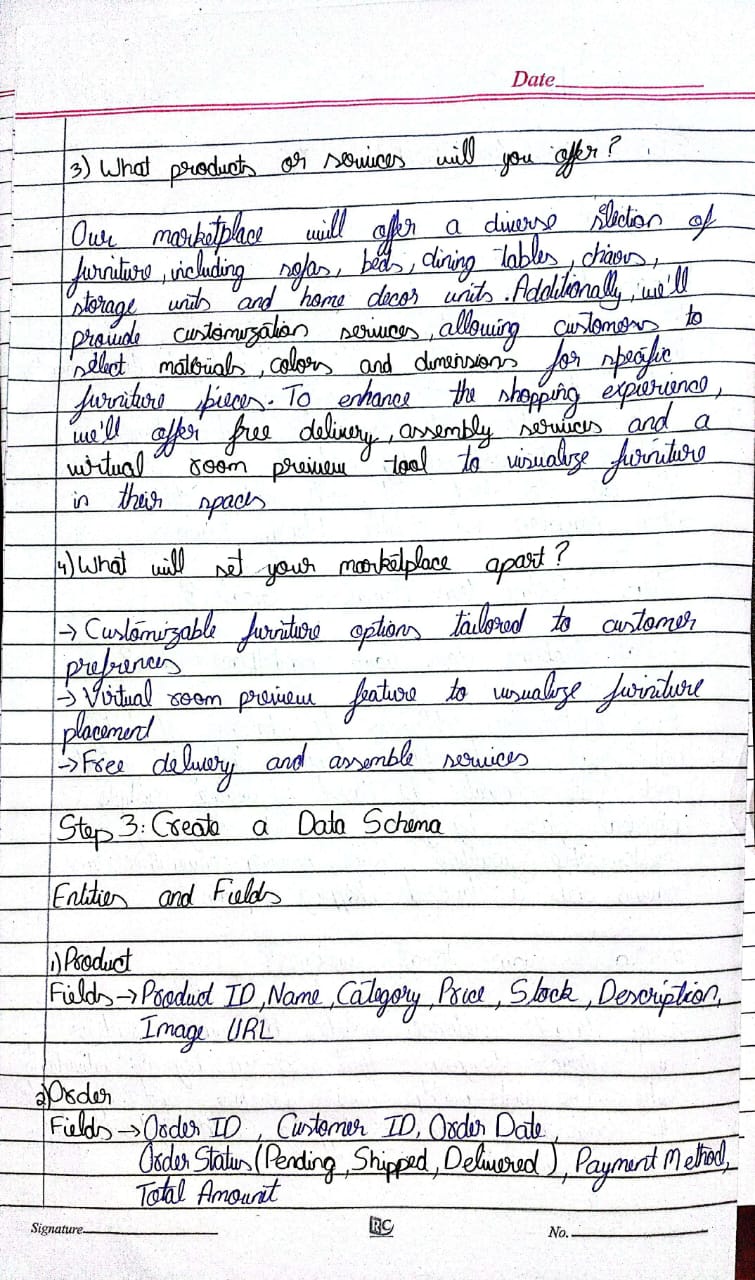 Date
3) What products or services will you offer?
Our marketplace will offer a diverse slection of
furniture, including sofas, beds, dining tables, chairs,
storage units and home decor units. Additionally, we'll
provide customization services, allowing customers to
select materials, colors and dimensions for specific
furniture pieces. To enhance the shopping experience,
we'll offer free delivery, assembly services and a
virtual room preview tool to visualize furniture
in their spaces
4) What will set your marketplace apart?
→ Customizable furniture options tailored to customer
prefrences
→ Virtual room preview feature to visualize furniture
placement
→ Free delivery and assemble services
Step 3: Create a Data Schema
Entities and Fields
1) Product
Fields → Product ID, Name, Category, Price, Stock, Description,
Image URL
2) Order
Fields → Order ID, Customer ID, Order Date,
Order Status (Pending, Shipped, Delivered), Payment Method,
Total Amount
Signature
RC
No.